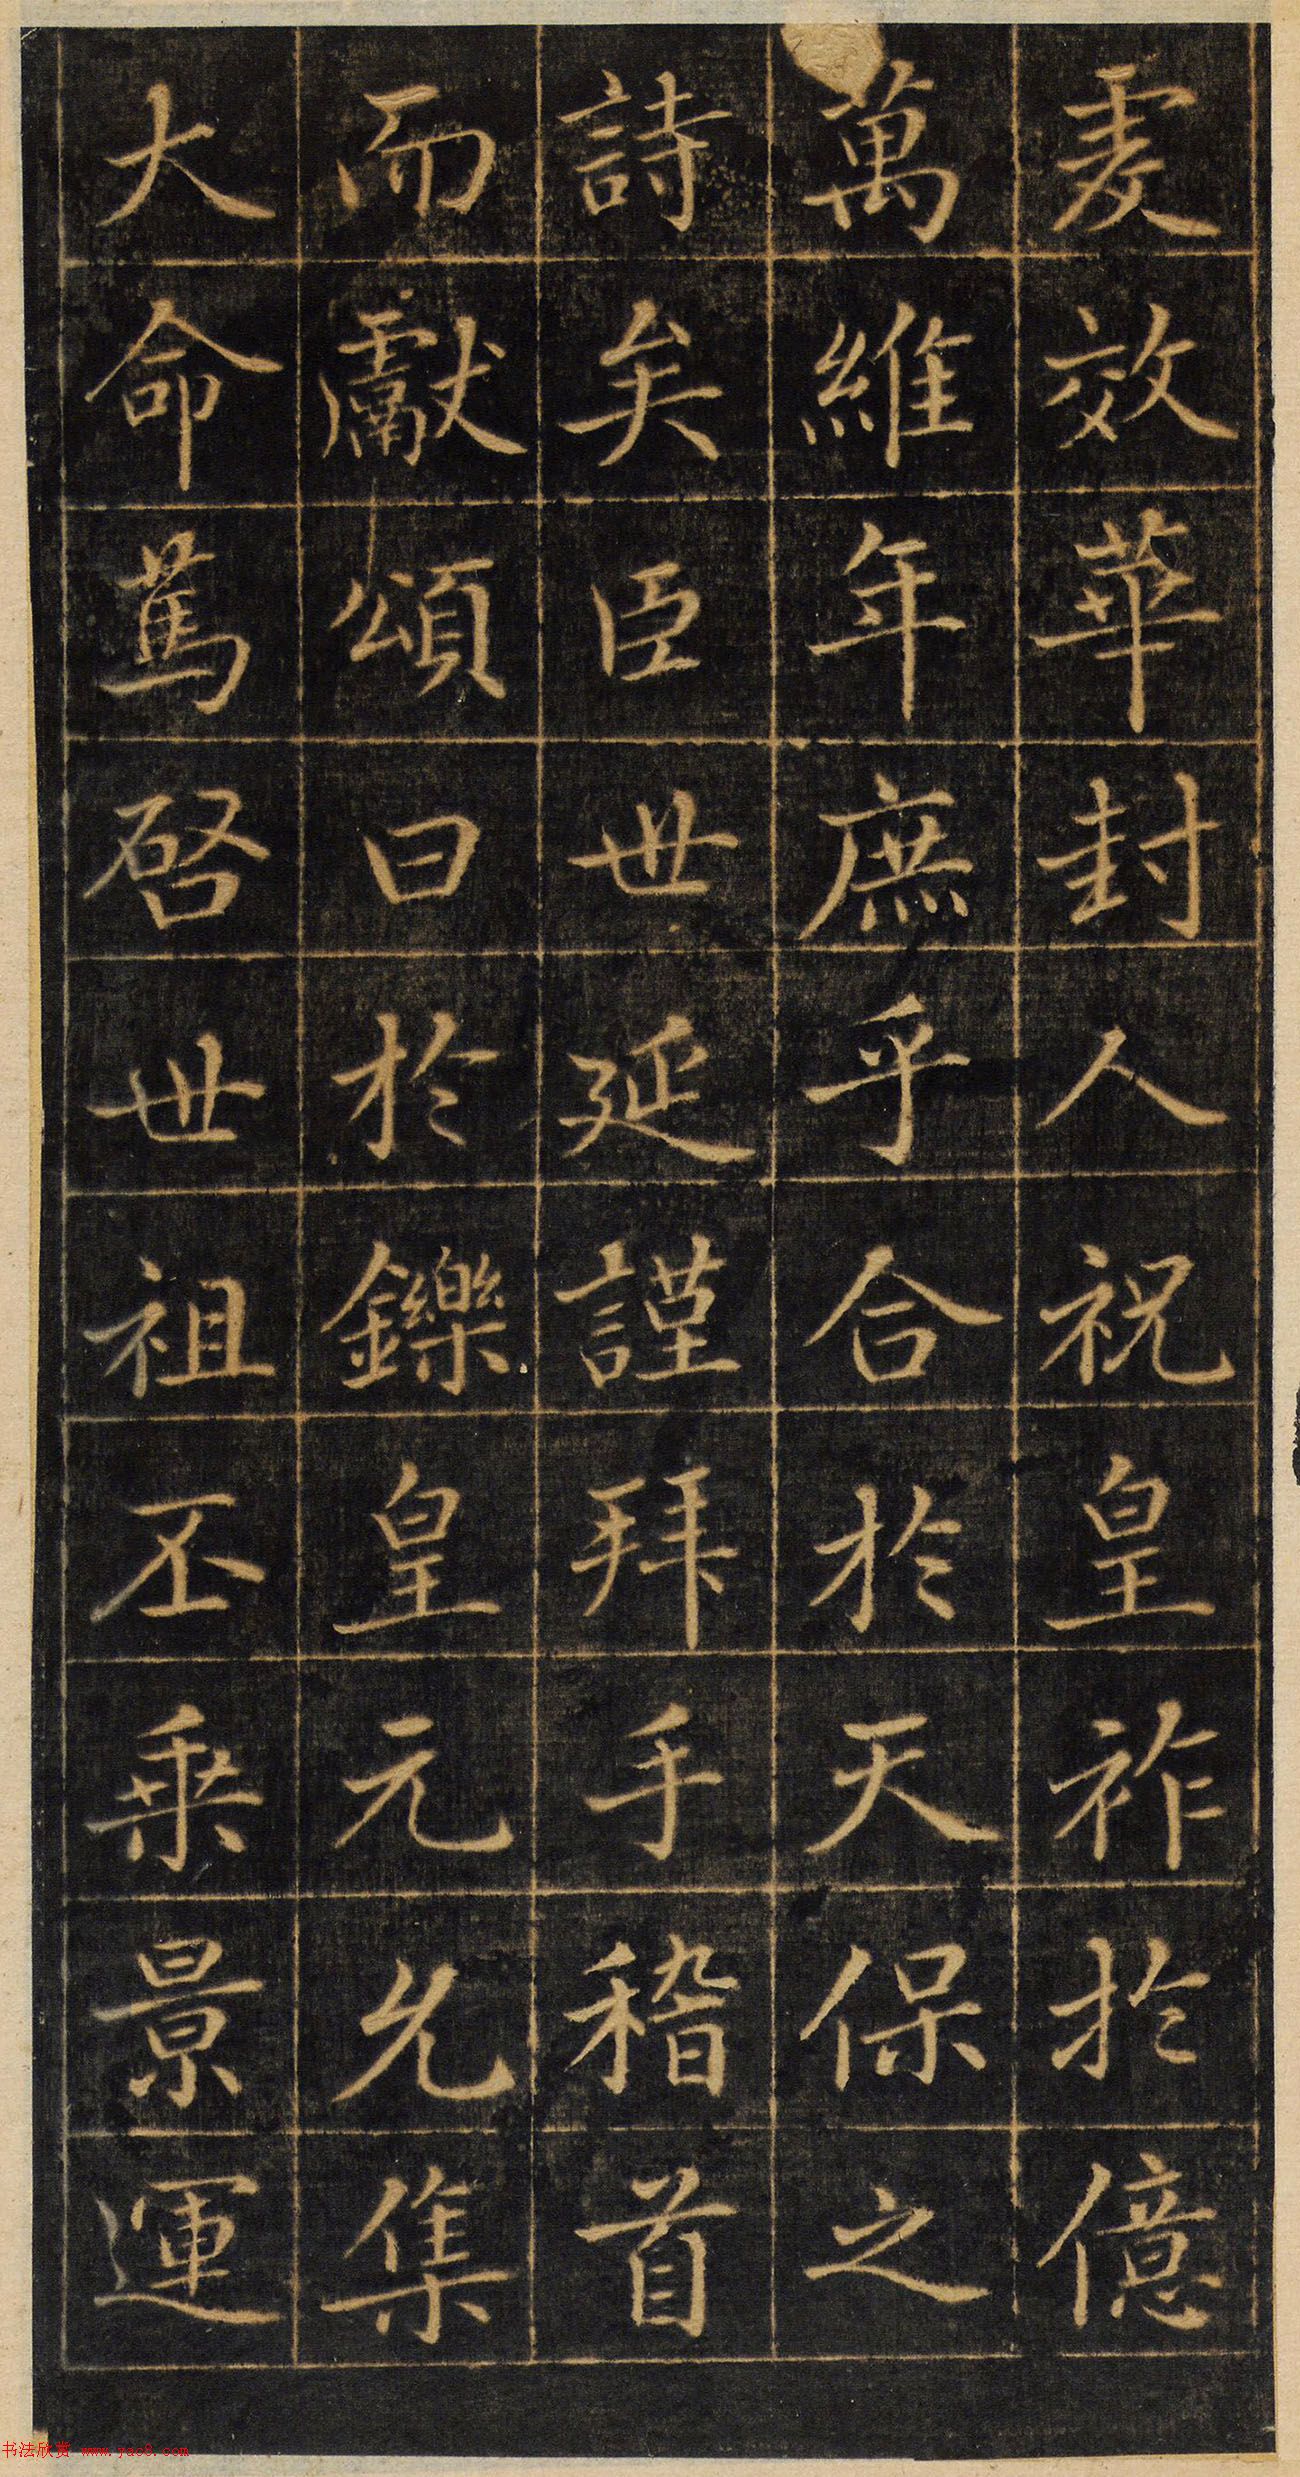 夌效華封人祝皇祚於億
萬維年庶乎合於天保之
詩矣臣世延謹拜手稽首
而獻頌曰於鑠皇元允集
大命篤啓世祖丕乗景運
书法欣赏 www.yac8.com